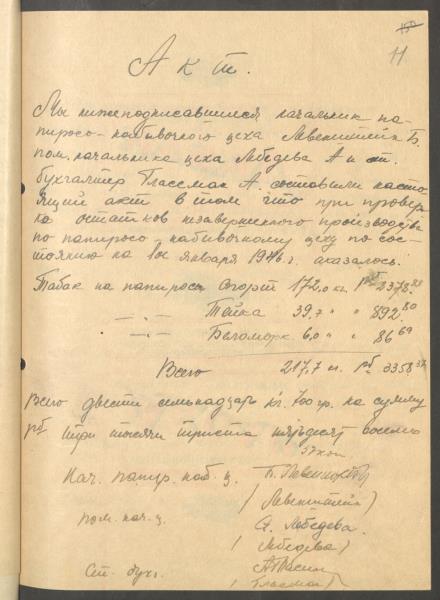 11
Акт.
Мы нижеподписавшиеся начальник па-
пиросо-набивочного цеха Левенштейн Б.
пом. начальника цеха Лебедева А и ст.
бухгалтер Глассман А. составили насто
ящий акт в том что при провер
ке остатков незавершенного производства
по папиросо-набивочному цеху по сос-
тоянию на 1ое января 1946 г. оказалось:
Табак на папиросы Спорт 172,0 кг. рб 2378.88
—„— Тейка 39,7 " " 892.80
—„— Беломорк. 6,0 " " 86.69
Всего 217,7 кг. рб 3358.37
Всего двести семьнадцать кг. 700 гр. на сумму
рб три тысячи триста пятьдесят восемь
37 коп
Нач. папир. наб. ц.
(Левенштейн)
пом. нач. ц. А. Лебедева.
(Лебедева)
Ст. бухг.
(Глассман)